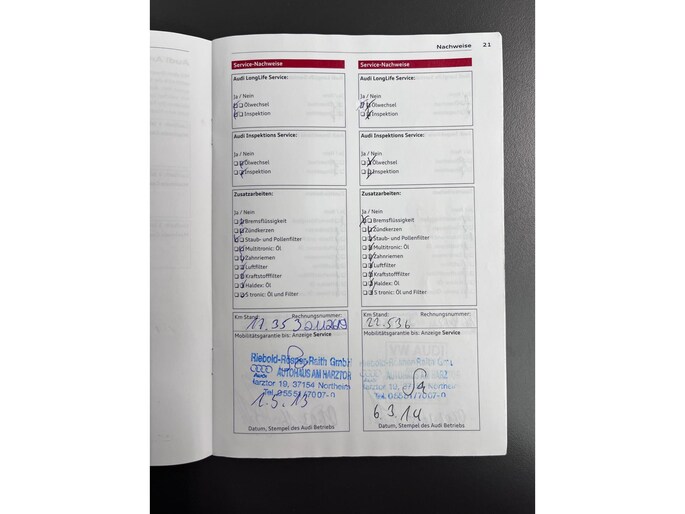 Nachweise 21
Service-Nachweise
Audi LongLife Service:
Ja / Nein
Ölwechsel
Inspektion
Audi Inspektions Service:
Ja / Nein
Ölwechsel
Inspektion
Zusatzarbeiten:
Ja / Nein
Bremsflüssigkeit
Zündkerzen
Staub- und Pollenfilter
Multitronic: Öl
Zahnriemen
Luftfilter
Kraftstofffilter
Haldex: Öl
S tronic: Öl und Filter
Km Stand: Rechnungsnummer:
17.353
Mobilitätsgarantie bis: Anzeige Service
Riebold-Röspel-Raith GmbH
Audi AUTOHAUS AM HARZTOR
Harztor 19, 37154 Northeim
Tel. 05551/7007-0
1.5.13
Datum, Stempel des Audi Betriebs
Service-Nachweise
Audi LongLife Service:
Ja / Nein
Ölwechsel
Inspektion
Audi Inspektions Service:
Ja / Nein
Ölwechsel
Inspektion
Zusatzarbeiten:
Ja / Nein
Bremsflüssigkeit
Zündkerzen
Staub- und Pollenfilter
Multitronic: Öl
Zahnriemen
Luftfilter
Kraftstofffilter
Haldex: Öl
S tronic: Öl und Filter
Km Stand: Rechnungsnummer:
22.536
Mobilitätsgarantie bis: Anzeige Service
6.3.14
Datum, Stempel des Audi Betriebs